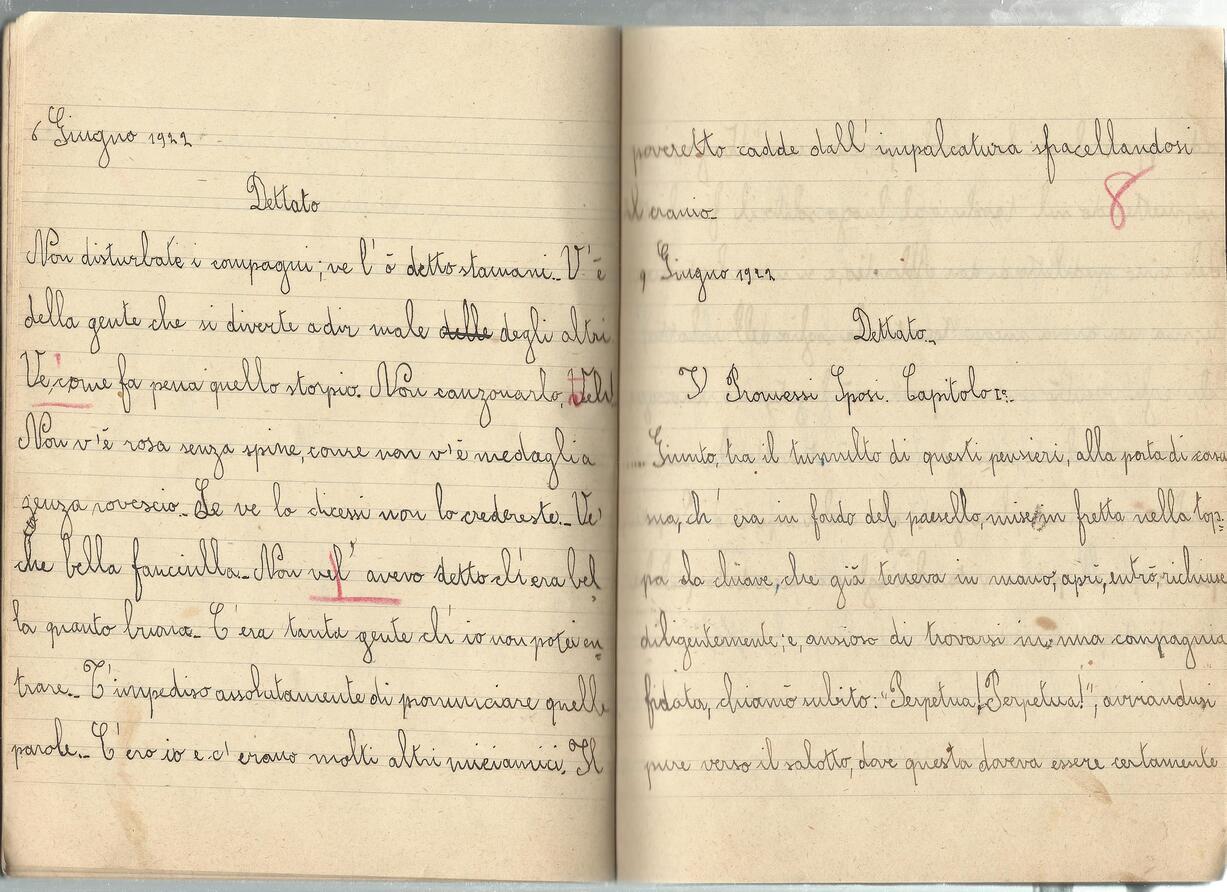 6 Giugno 1922
Dettato
Non disturbate i compagni; ve l' ò detto stamani. V'è
della gente che si diverte a dir male delle degli altri.
Ve' come fa pena quello storpio. Non canzonarlo,
Non v'è rosa senza spine, come non v'è medaglia
senza rovescio. Se ve lo dicessi non lo credereste. Ve'
che bella fanciulla. Non vel' avevo detto ch'era bel,
la quanto buona. C'era tanta gente ch'io non potei en=
trare. T'impediso assolutamente di pronunciare quelle
parole. C'ero io e c'erano molti altri mieiamici. Il
poveretto cadde dall' impalcatura sfracellandosi
il cranio.
8
9 Giugno 1922
Dettato.
I Promessi Sposi. Capitolo
Giunto, tra il tumulto di questi pensieri, alla porta di casa
sua, ch' era in fondo del paesello, mise in fretta nella top=
pa la chiave, che già teneva in mano; aprì, entrò, richiuse
diligentemente; e, ansioso di trovarsi in una compagnia
fidata, chiamò subito: "Perpetua! Perpetua!", avviandosi
pure verso il salotto, dove questa doveva essere certamente